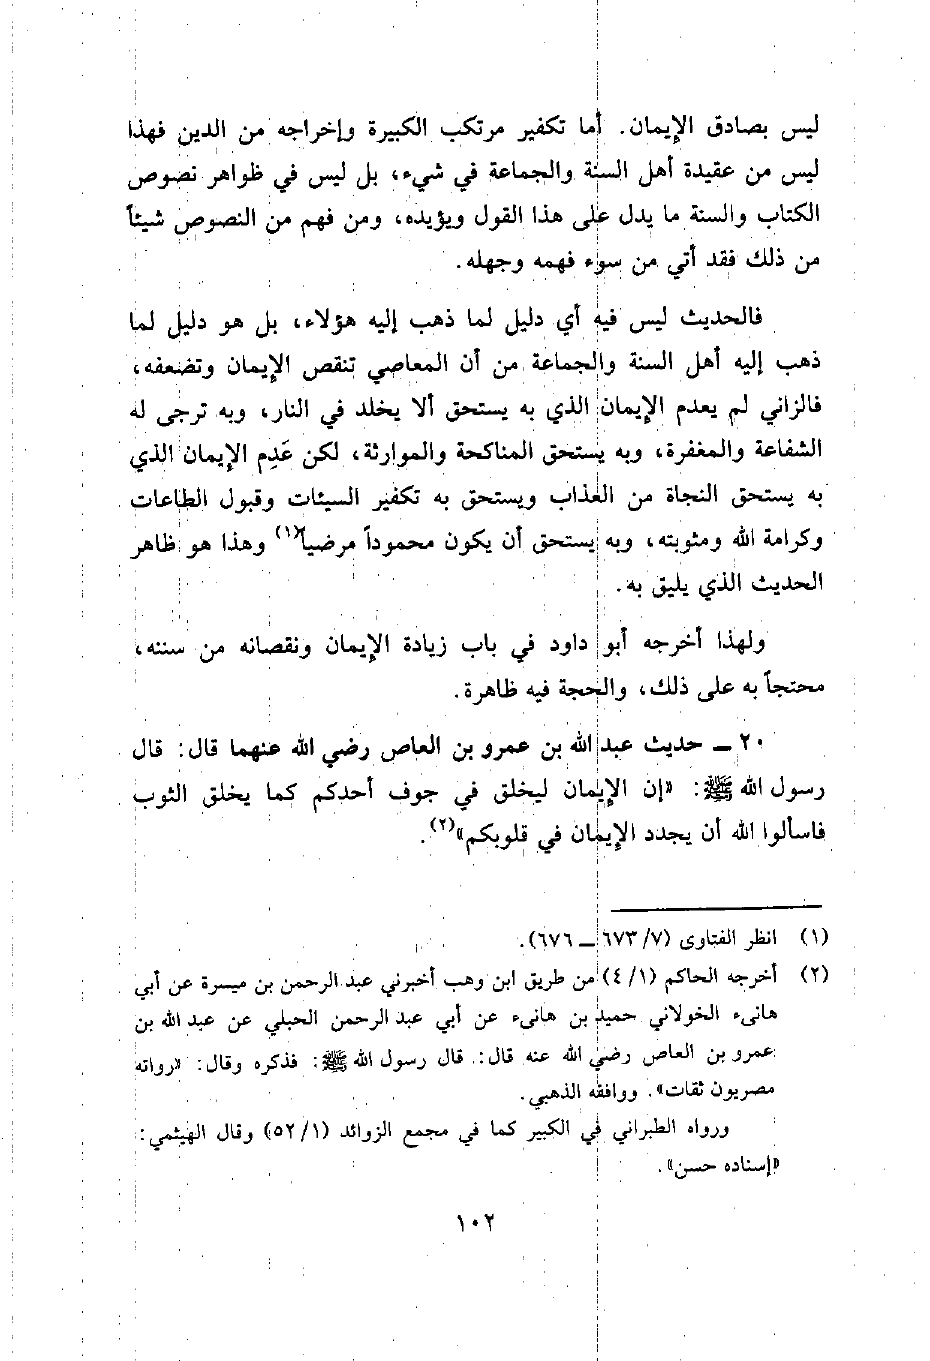 ليس بصادق الإيمان. أما تكفير مرتكب الكبيرة وإخراجه من الدين فهذا
ليس من عقيدة أهل السنة والجماعة في شيء، بل ليس في ظواهر نصوص
الكتاب والسنة ما يدل على هذا القول ويؤيده، ومن فهم من النصوص شيئاً
من ذلك فقد أتي من سوء فهمه وجهله.
فالحديث ليس فيه أي دليل لما ذهب إليه هؤلاء، بل هو دليل لما
ذهب إليه أهل السنة والجماعة من أن المعاصي تنقص الإيمان وتضعفه،
فالزاني لم يعدم الإيمان الذي به يستحق ألا يخلد في النار، وبه ترجى له
الشفاعة والمغفرة، وبه يستحق المناكحة والموارثة، لكن عَدِم الإيمان الذي
به يستحق النجاة من العذاب ويستحق به تكفير السيئات وقبول الطاعات
وكرامة الله ومثوبته، وبه يستحق أن يكون محموداً مرضياً(١) وهذا هو ظاهر
الحديث الذي يليق به.
ولهذا أخرجه أبو داود في باب زيادة الإيمان ونقصانه من سننه،
محتجاً به على ذلك، والحجة فيه ظاهرة.
٢٠ ـ حديث عبد الله بن عمرو بن العاص رضي الله عنهما قال: قال
رسول الله ﷺ: «إن الإيمان ليخلق في جوف أحدكم كما يخلق الثوب
فاسألوا الله أن يجدد الإيمان في قلوبكم»(٢).
(١) انظر الفتاوى (٧/ ٦٧٣ ـ ٦٧٦).
(٢) أخرجه الحاكم (١/ ٤) من طريق ابن وهب أخبرني عبد الرحمن بن ميسرة عن أبي
هانىء الخولاني حميد بن هانىء عن أبي عبد الرحمن الحبلي عن عبد الله بن
عمرو بن العاص رضي الله عنه قال: قال رسول الله ﷺ: فذكره وقال: «رواته
مصريون ثقات». ووافقه الذهبي.
ورواه الطبراني في الكبير كما في مجمع الزوائد (١/ ٥٢) وقال الهيثمي:
«إسناده حسن».
١٠٢